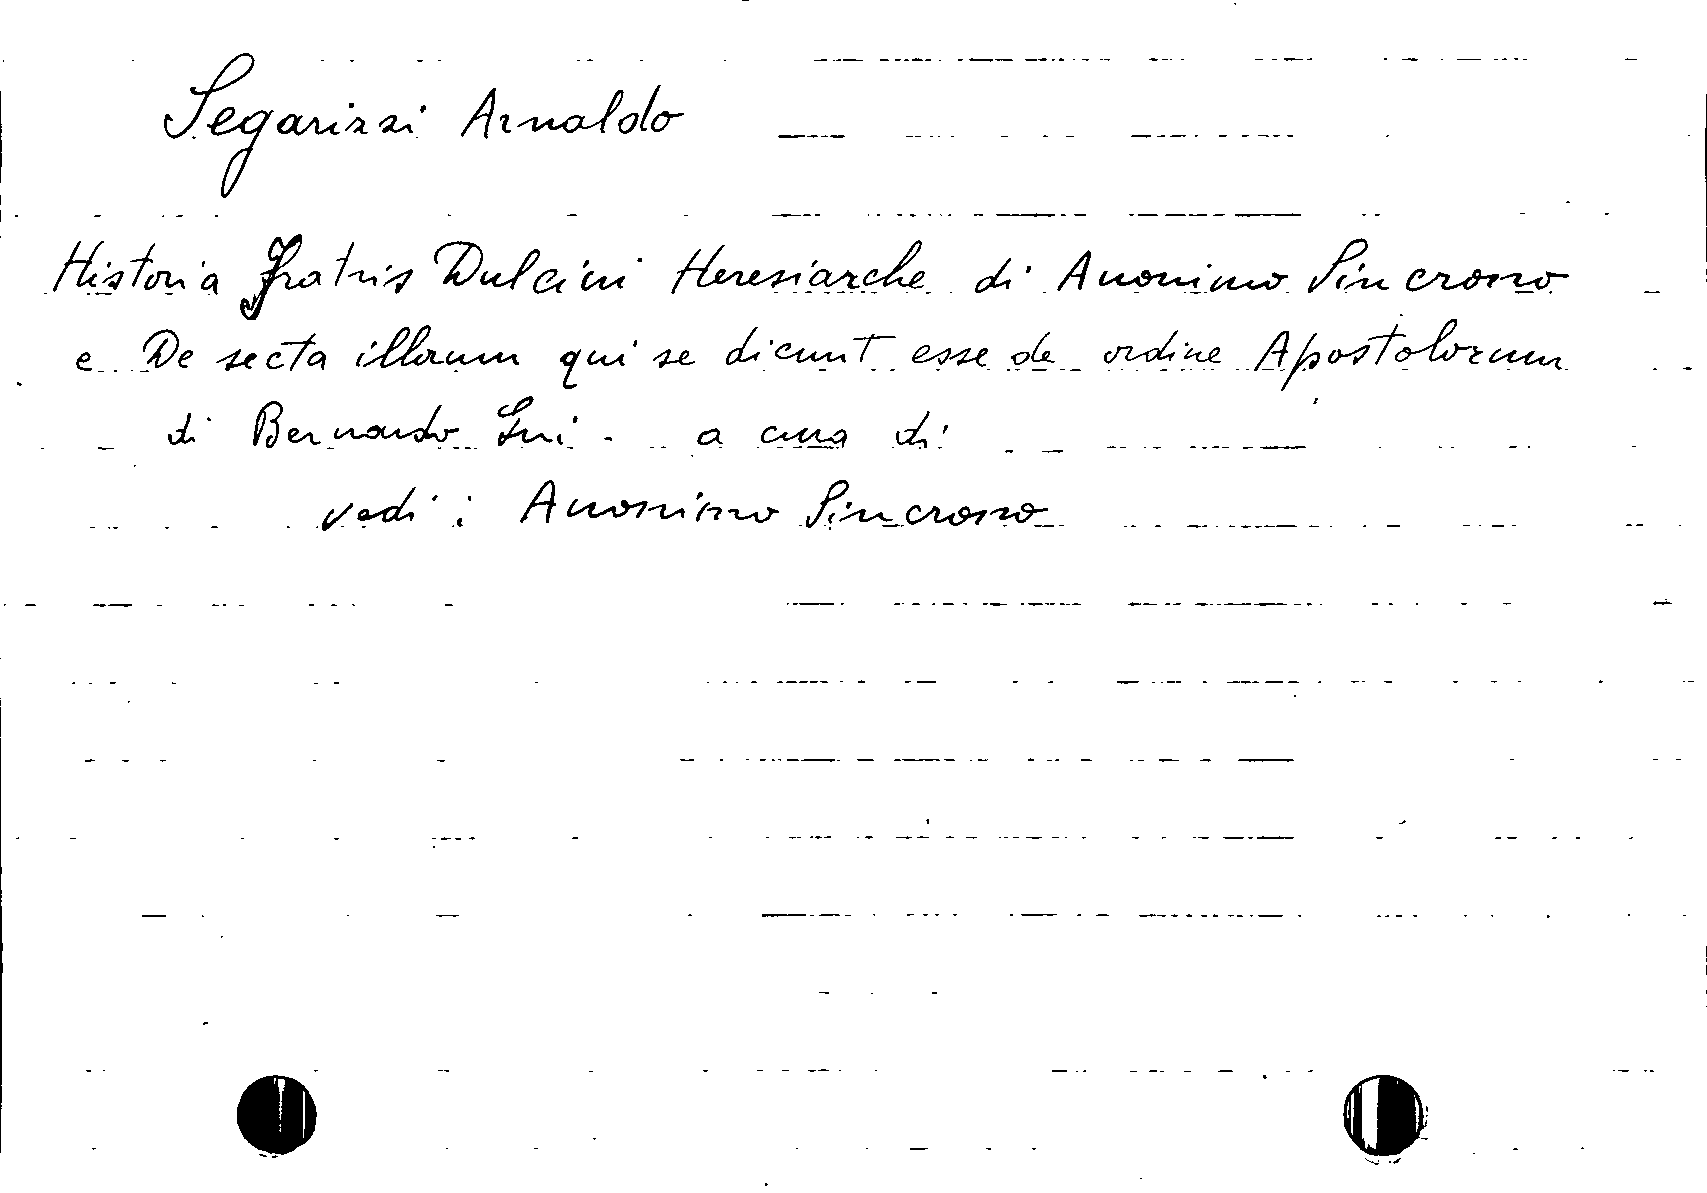 Segarizzi Arnaldo
Historia Fratris Dulcini Heresiarche di Anonimo Sincrono
e De secta illorum qui se dicunt esse de ordine Apostolorum
di Bernardo Gui - a cura di
vedi : Anonimo Sincrono